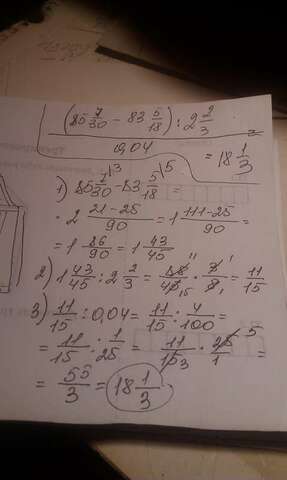 (85 7/30 − 83 5/18) : 2 2/3
0,04
= 18 1/3
1) 85 7/30 \3 − 83 5/18 \5 =
· 2 21−25/90 = 1 111−25/90 =
= 1 86/90 = 1 43/45
2) 1 43/45 : 2 2/3 = 88 11/45 15 · 3 1/8 1 = 11/15
3) 11/15 : 0,04 = 11/15 : 4/100 =
= 11/15 : 1/25 = 11/15 3 · 25 5/1 =
= 55/3 = 18 1/3